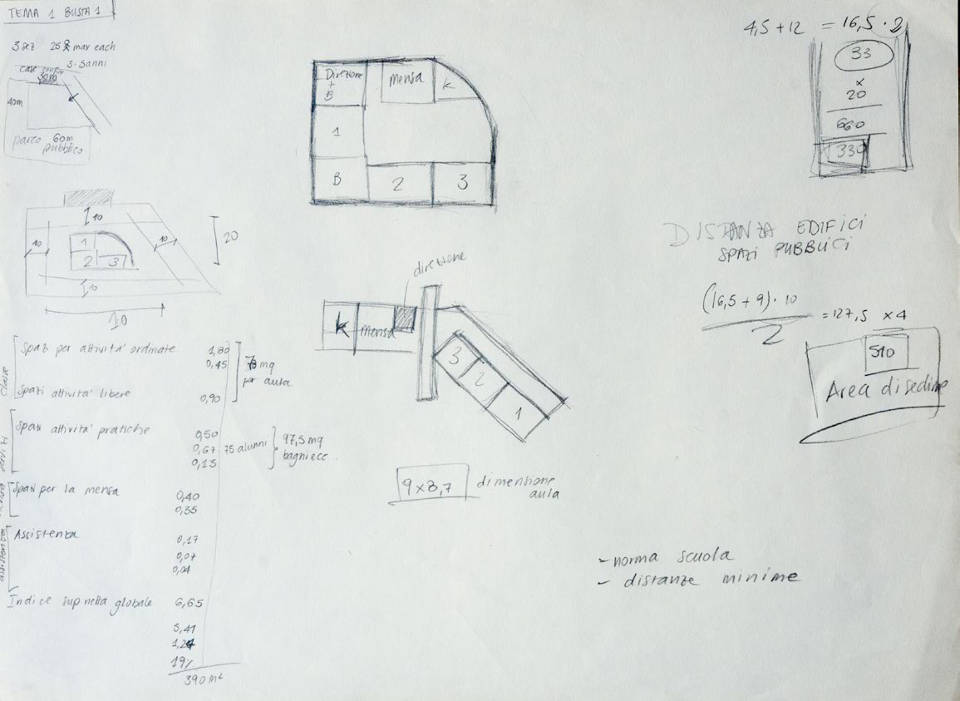 TEMA 1 BUSTA 1
3 sez 25 max each
3-5 anni
40m
parco 60m
pubblico
10
10
10
20
1
2
3
10
10
Spazi per attività ordinate 1,80
0,45
Spazi attività libere 0,90
mq
per aula
Spazi attività pratiche 0,50
0,67 75 alunni
0,13
97,5 mq
Spazi per la mensa 0,40
0,35
Assistenza 0,17
0,07
0,04
Indice sup netta globale 6,65
5,41
1,24
19%
390 m²
Direzione
+
B
mensa
K
1
B
2
3
direzione
K
mensa
3
2
1
9 x 8,7
dimensione
aula
4,5 + 12 = 16,5 · 2
33
x
20
660
330
DISTANZA EDIFICI
SPAZI PUBBLICI
(16,5 + 9) · 10
2
= 127,5 x 4
510
Area di sedime
- norma scuola
- distanze minime